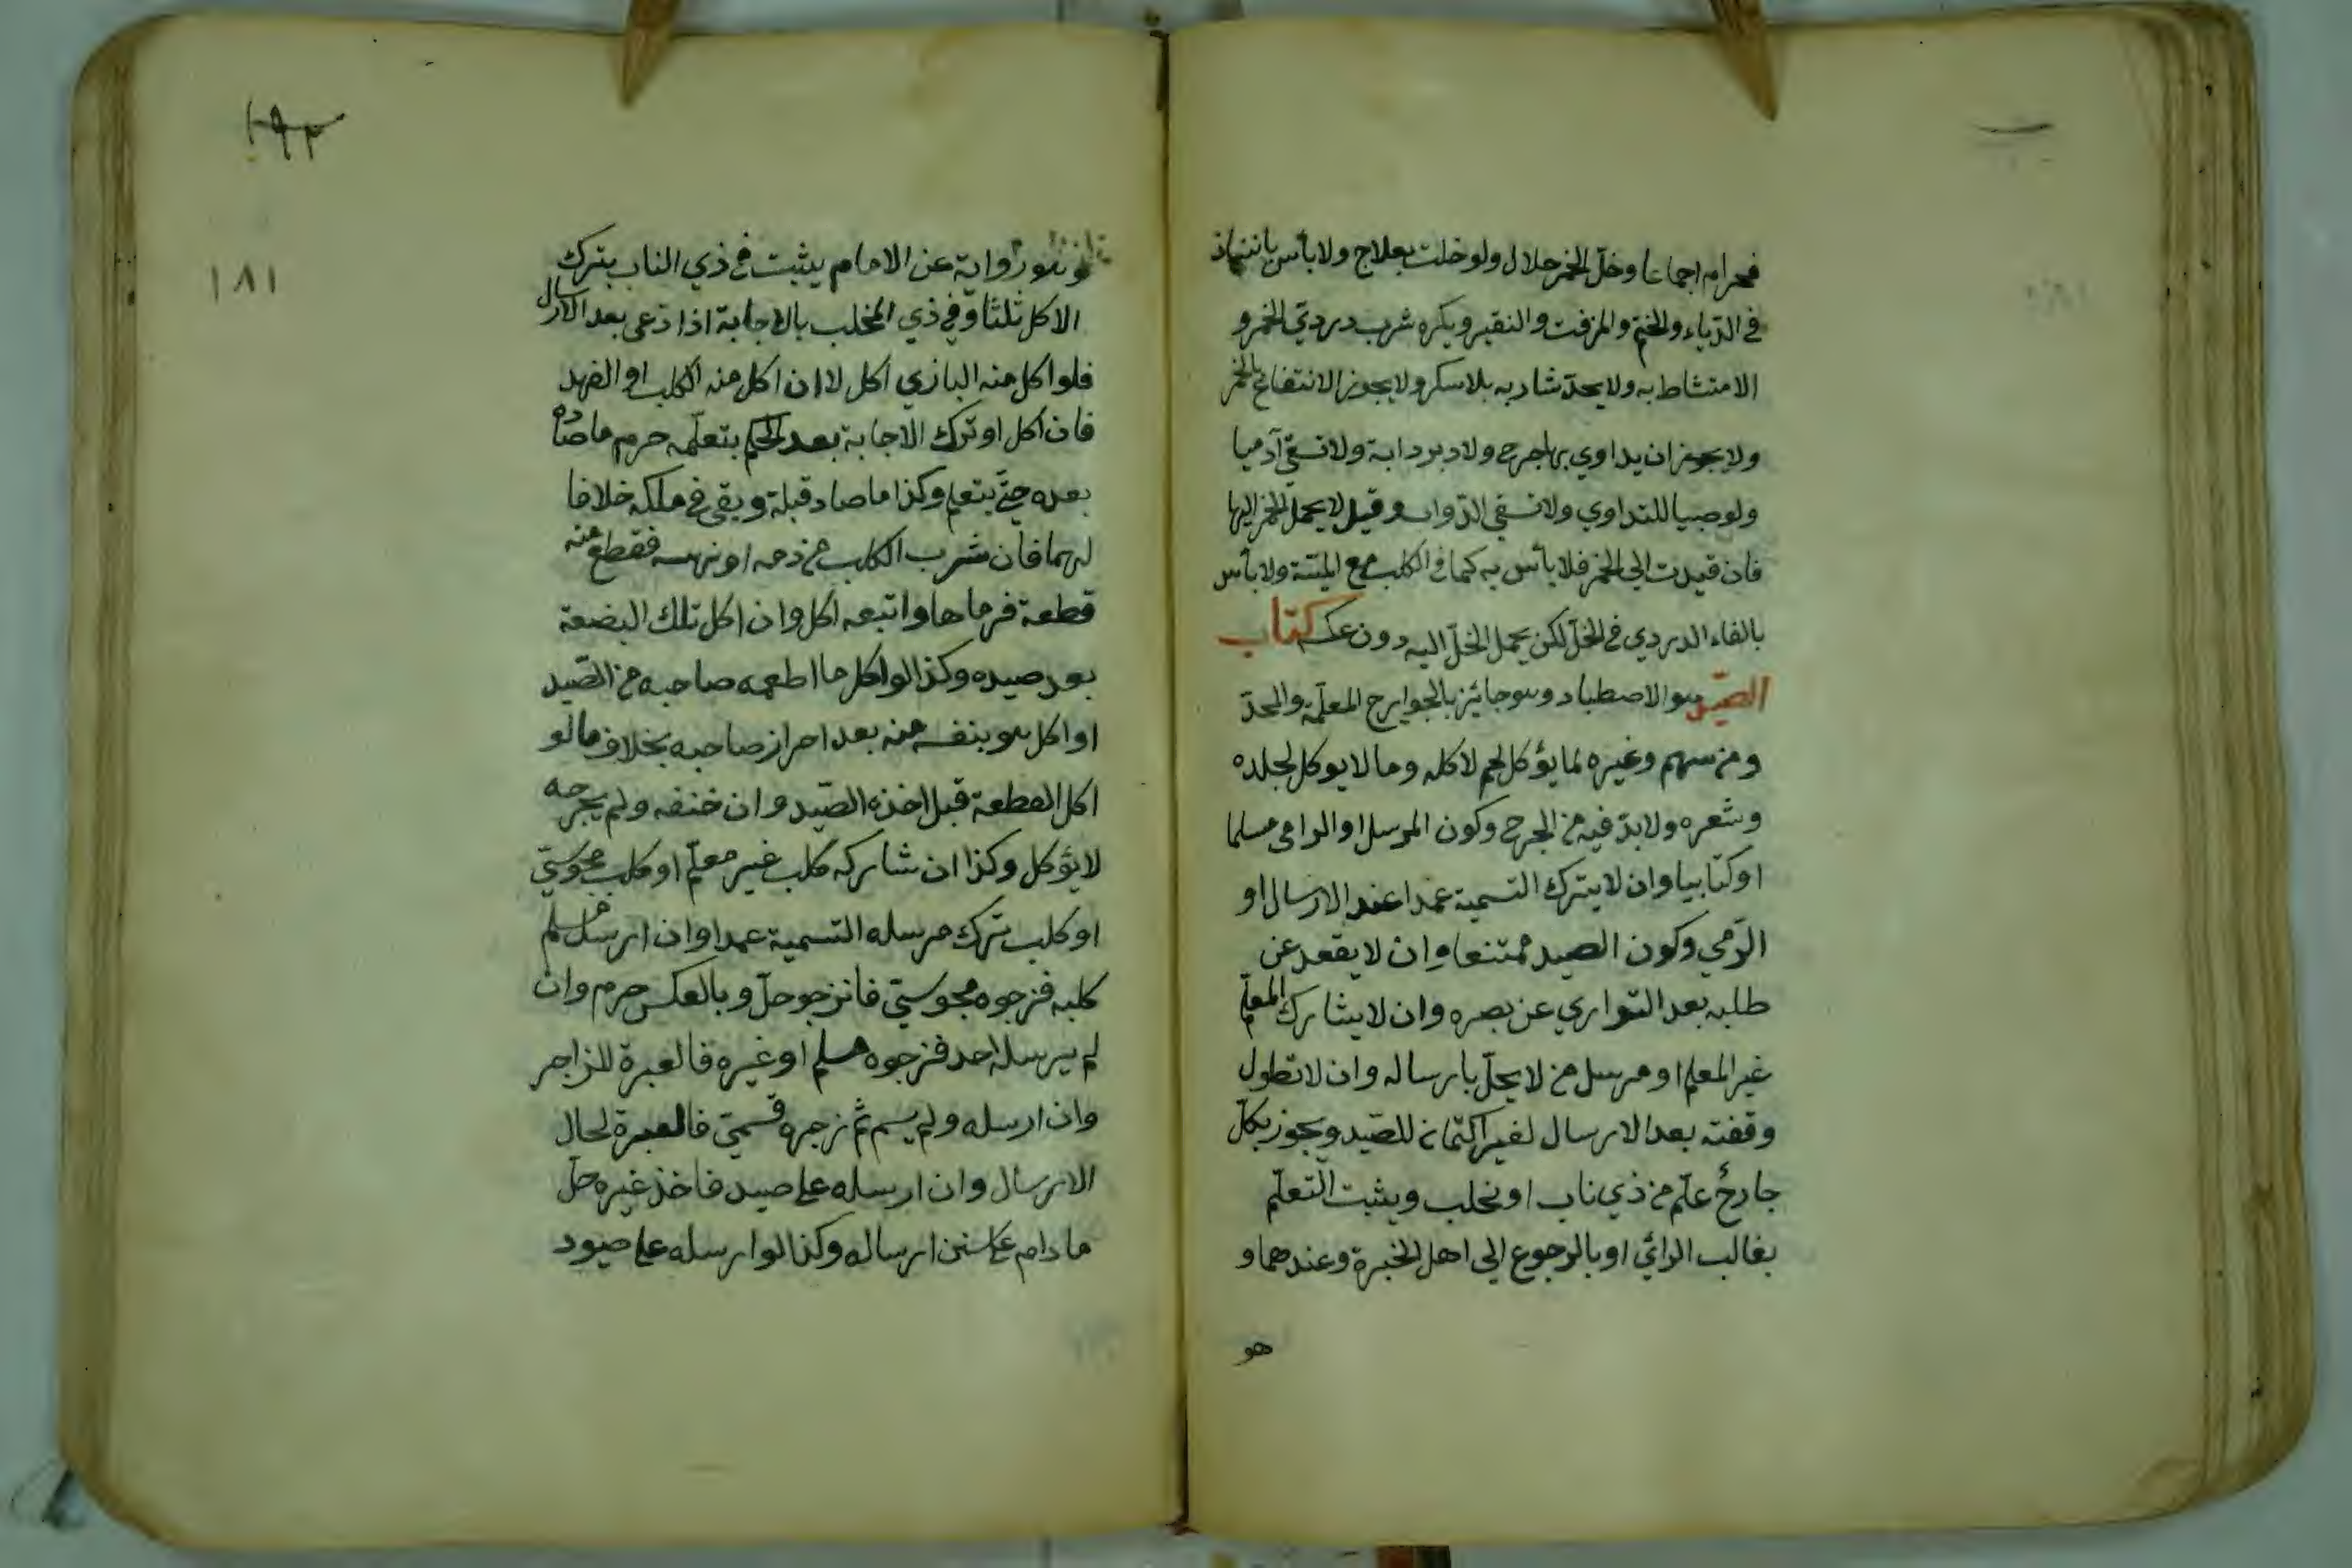 فحرام اجماعا وخلّ الخمر حلال ولو خلت بعلاج ولا بأس بانتباذ
في الدّباء والختم والمزفت والنقير ويكره شرب درديّ الخمر و
الامتشاط به ولا يحدّ شاربه بلا سكر ولا يجوز الانتفاع بالخمر
ولا يجوز ان يداوي بها جرح ولا دبر دابة ولا تسقي آدميا
ولو صبيا للتداوي ولا تسقي الدّواب وقيل لا يحمل الخمر اليها
فان قيدت الى الخمر فلا بأس به كما في الكلب مع الميتة ولا بأس
بالقاء الدردي في الخلّ لكن يحمل الخلّ اليه دون عكسه كتاب
الصّيد هو الاصطياد وهو جائز بالجوارح المعلّمة والمحدّد
ومن سهم وغيره لما يؤكل لحم لاكله وما لا يوكل لجلده
وشعره ولا بدّ فيه من الجرح وكون المرسل او الرامي مسلما
او كتابيا وان لا يترك التسمية عمدا عند الارسال او
الرّمي وكون الصيد ممتنعا وان لا يقعد عن
طلبه بعد التواري عن بصره وان لا يشارك المعلّم
غير المعلم او مرسل من لا يحلّ بارساله وان لا تطول
وقفته بعد الارسال لغير اكتمان للصّيد ويجوز بكلّ
جارح علّم من ذي ناب او مخلب ويثبت التعلّم
بغالب الرائ او بالرجوع الى اهل الخبرة وعندهما و
هو
١٩٢
١٨١
وهو رواية عن الامام يثبت في ذي الناب بترك
الاكل ثلثا وفي ذي المخلب بالاجابة اذا دعى بعد الارسال
فلو اكل منه البازي اكل لا ان اكل منه الكلب او الفهد
فان اكل او ترك الاجابة بعد الحكم بتعلّمه حرم ما صاده
بعده حتى يتعلم وكذا ما صاد قبله وبقى في ملكه خلافا
لهما فان شرب الكلب من دمه او نهسه فقطع منه
قطعة فرماها واتبعه اكل وان اكل تلك البضعة
بعد صيده وكذا لو اكل ما اطعمه صاحبه من الصّيد
او اكل هو بنفسه منه بعد احراز صاحبه بخلاف ما لو
اكل القطعة قبل اخذه الصّيد وان خنقه ولم يجرحه
لا يؤكل وكذا ان شاركه كلب غير معلّم او كلب مجوسيّ
او كلب ترك مرسله التسمية عمدا وان ارسل مسلم
كلبه فزجره مجوسيّ فانزجر حلّ وبالعكس حرم وان
لم يرسله احد فزجره مسلم او غيره فالعبرة للزاجر
وان ارسله ولم يسم ثم زجره فسمّى فالعبرة لحال
الارسال وان ارسله على صيد فاخذ غيره حلّ
ما دام على سنن ارساله وكذا لو ارسله على صيود